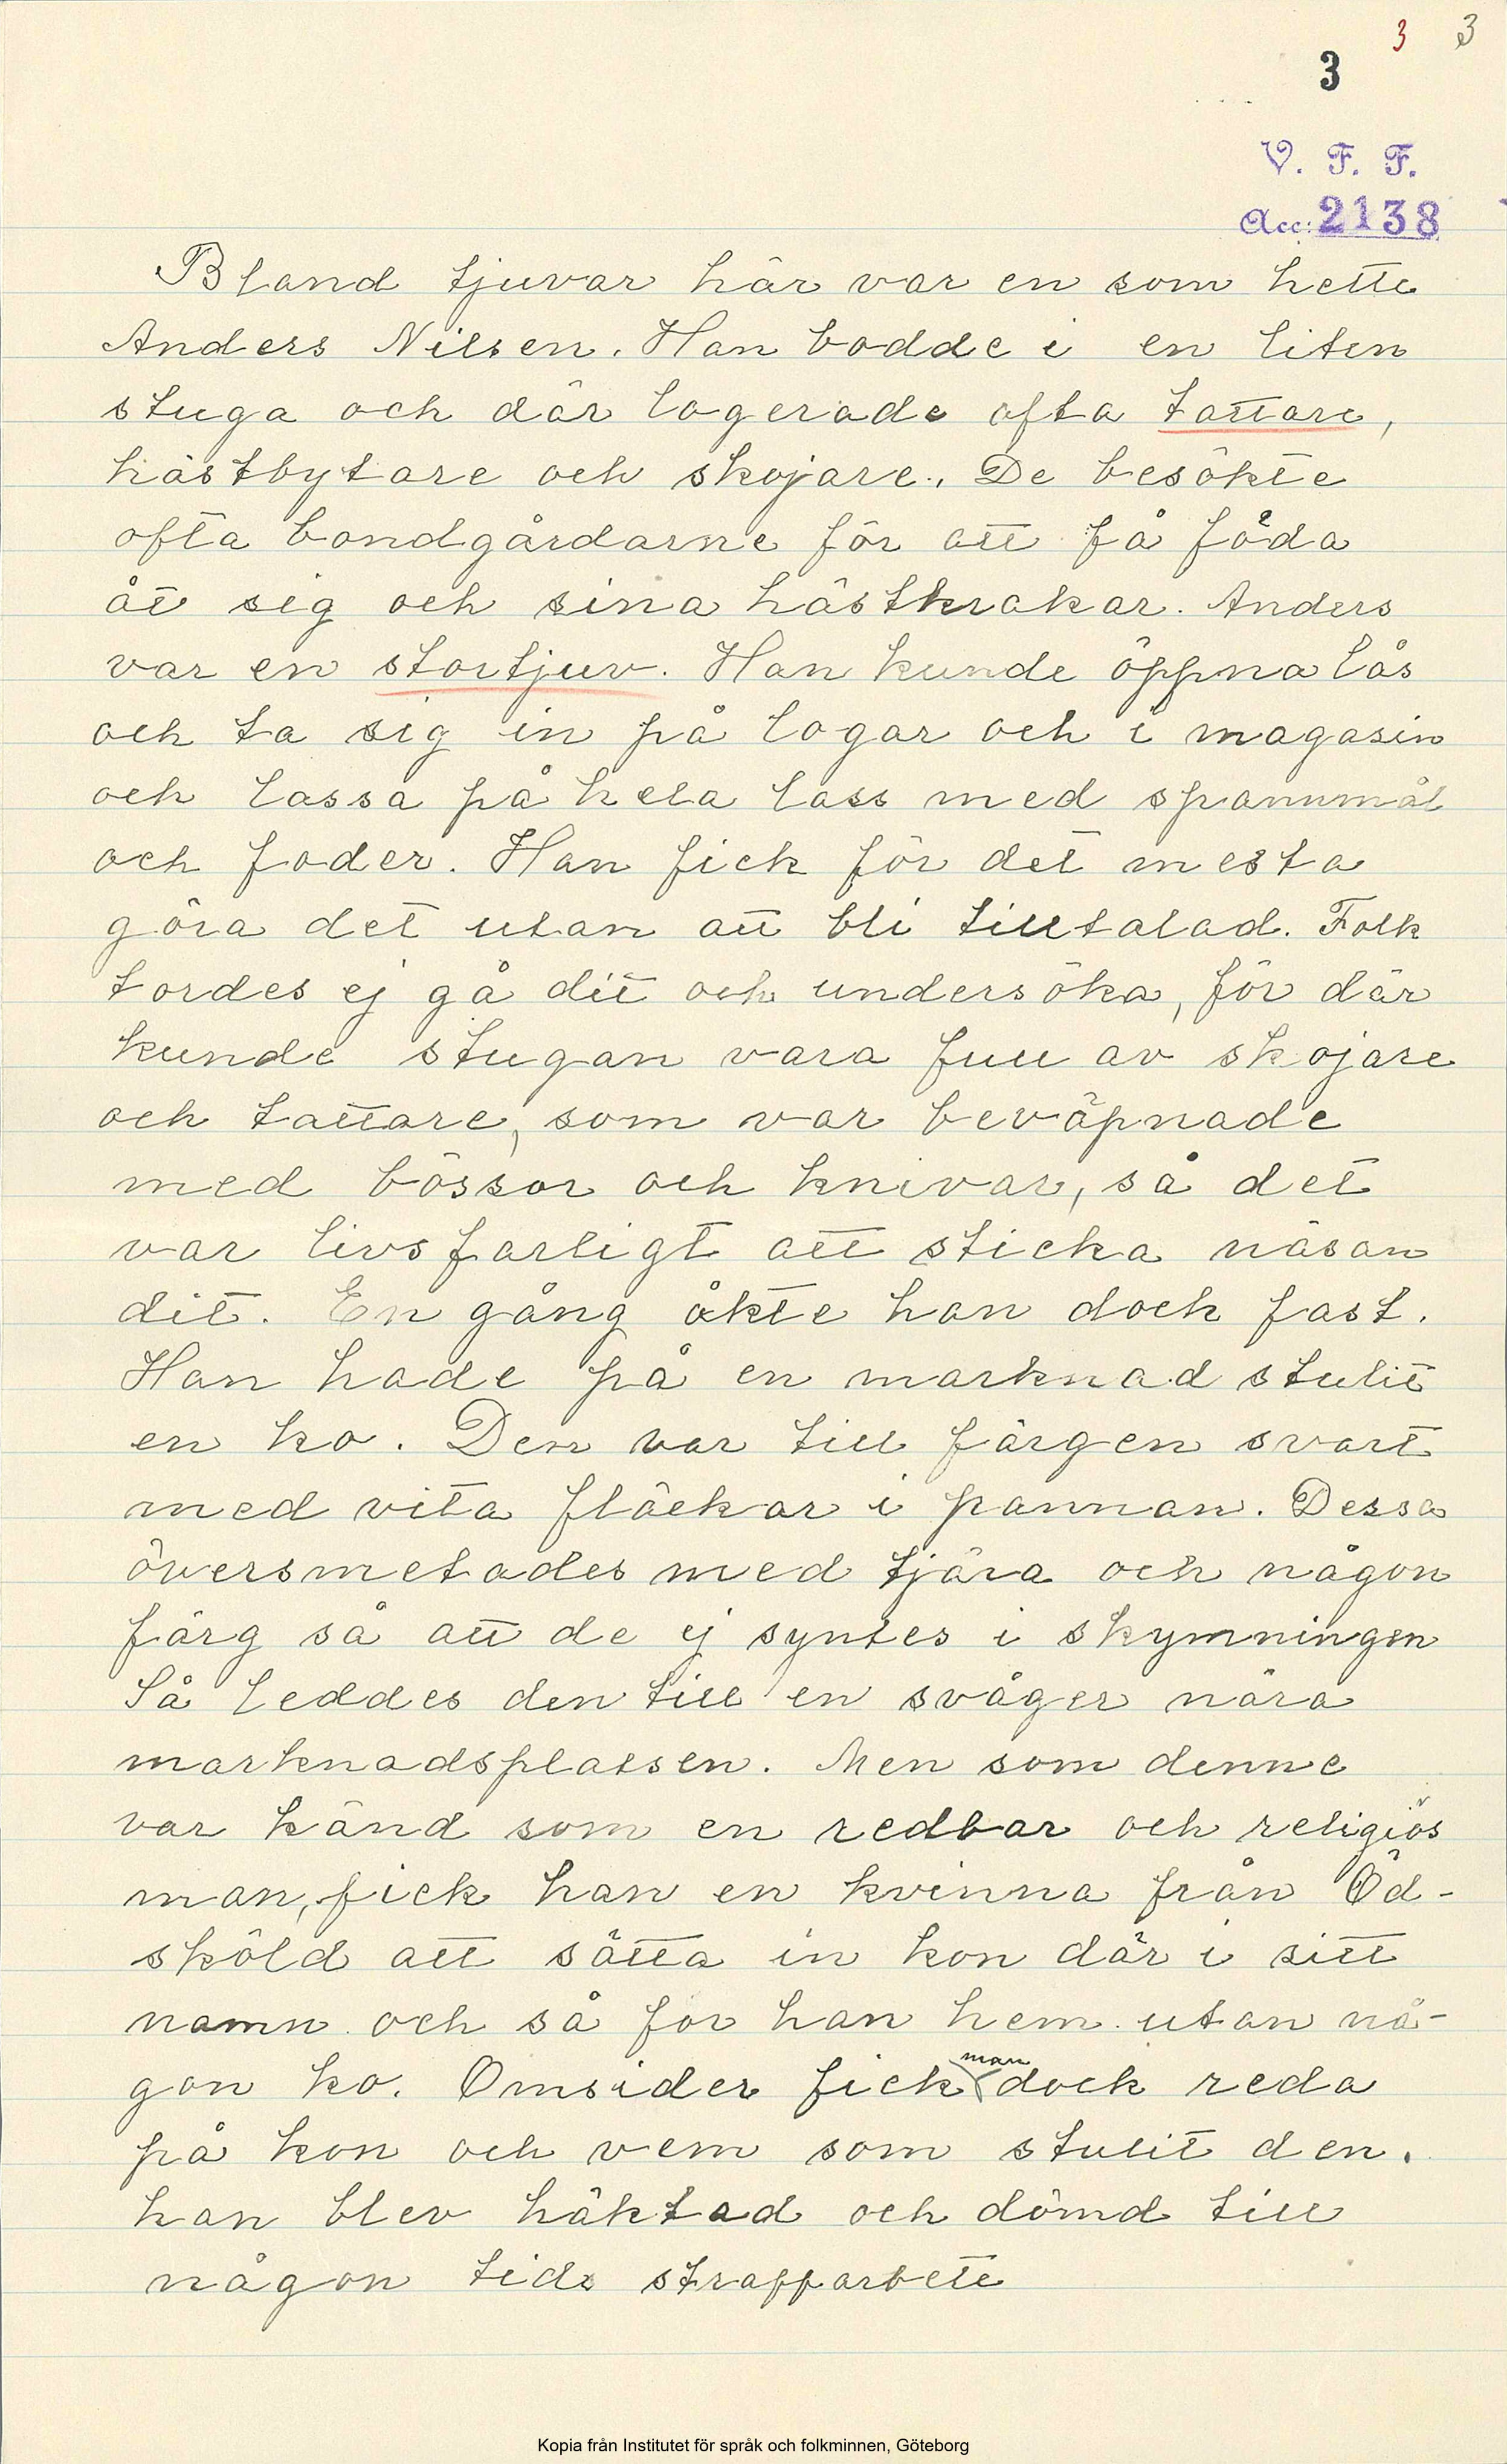 3 3
3
V. F. F.
Acc: 2138
Bland tjuvar här var en som hette
Anders Nilsen. Han bodde i en liten
stuga och där logerade ofta tattare,
hästbytare och skojare. De besökte
ofta bondgårdarne för att få föda
åt sig och sina hästkrakar. Anders
var en stortjuv. Han kunde öppna lås
och ta sig in på logar och i magasin
och lassa på hela lass med spannmål
och foder. Han fick för det mesta
göra det utan att bli tilltalad. Folk
tordes ej gå dit och undersöka, för där
kunde stugan vara full av skojare
och tattare, som var beväpnade
med bössor och knivar, så det
var livsfarligt att sticka näsan
dit. En gång åkte han dock fast.
Han hade på en marknad stulit
en ko. Den var till färgen svart
med vita fläckar i pannan. Dessa
översmetades med tjära och någon
färg så att de ej syntes i skymningen
Så leddes den till en svåger nära
marknadsplatsen. Men som denne
var känd som en redbar och religiös
man, fick han en kvinna från Öd-
sköld att sätta in kon där i sitt
namn och så for han hem utan nå-
gon ko. Omsider fick man dock reda
på kon och vem som stulit den.
han blev häktad och dömd till
någon tids straffarbete
Kopia från Institutet för språk och folkminnen, Göteborg